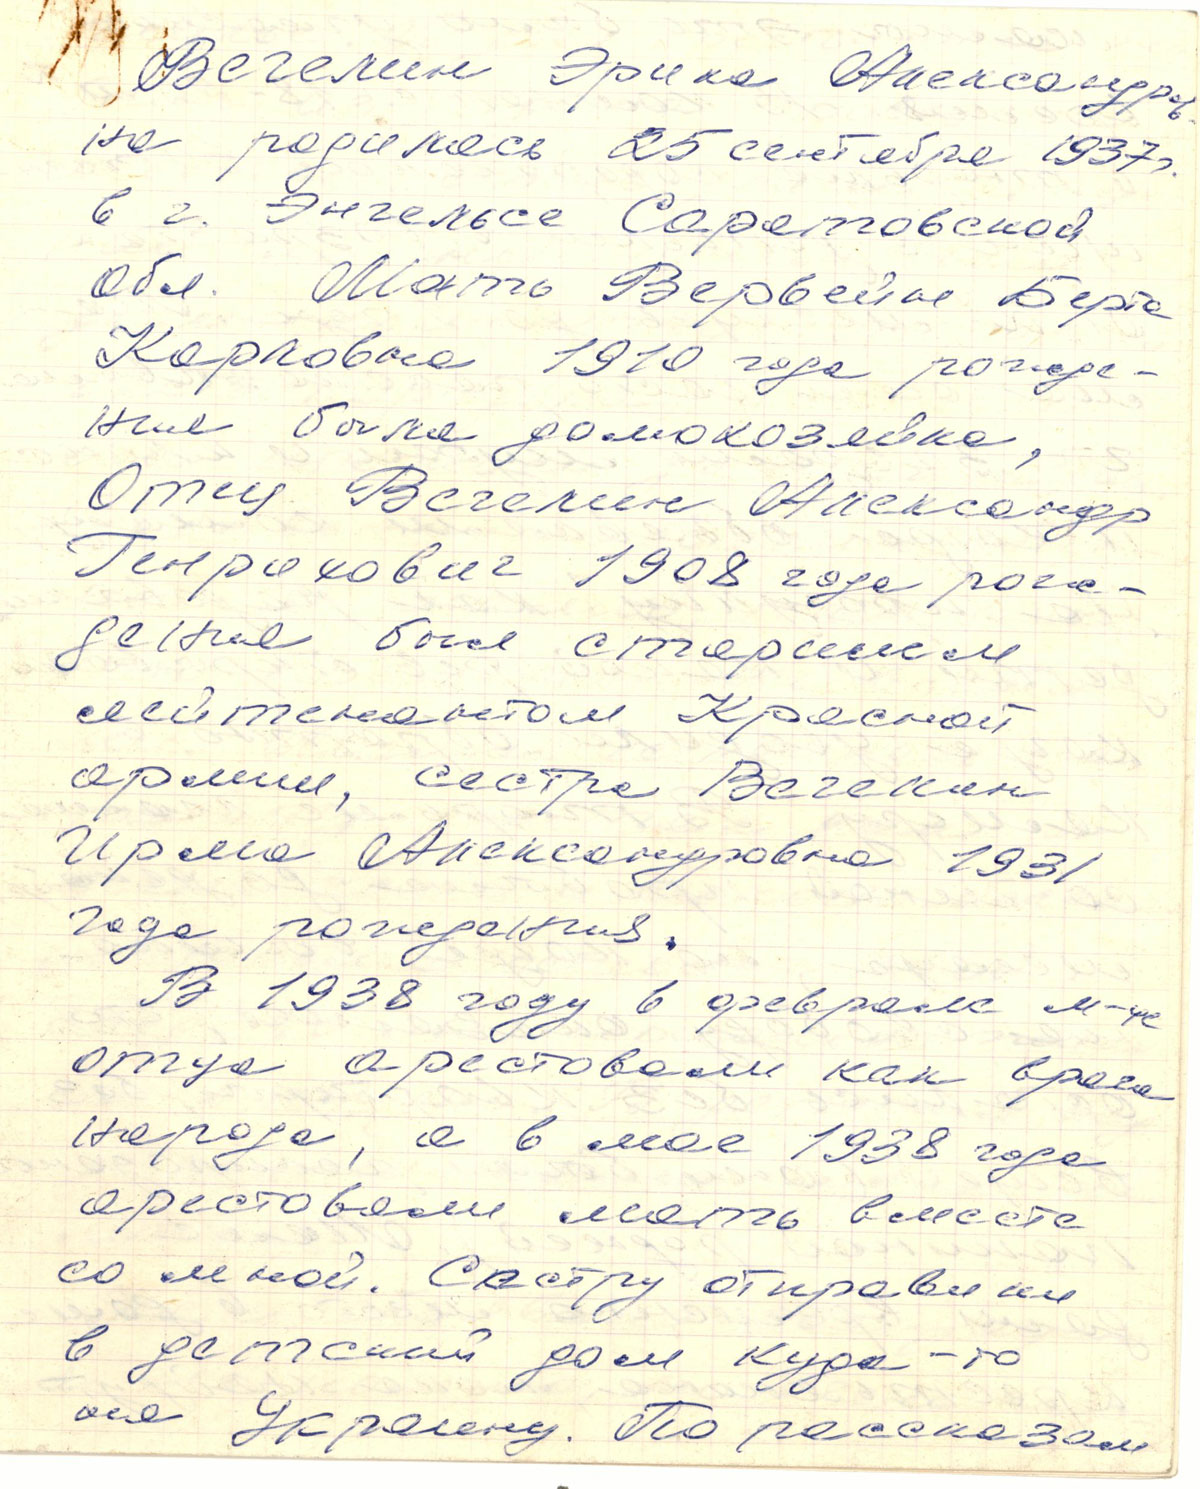 Вегелин Эрика Александров-
на родилась 25 сентября 1937 г.
в г. Энгельсе Саратовской
обл. Мать Вервейн Берта
Карловна 1910 года рожде-
ния была домохозяйка,
Отец Вегелин Александр
Генрихович 1908 года рож-
дения был старшим
лейтенантом Красной
армии, сестра Вегелин
Ирма Александровна 1931
года рождения.
В 1938 году в феврале м-це
отца арестовали как врага
народа, а в мае 1938 года
арестовали мать вместе
со мной. Сестру отправили
в детский дом куда-то
на Украину. По рассказам